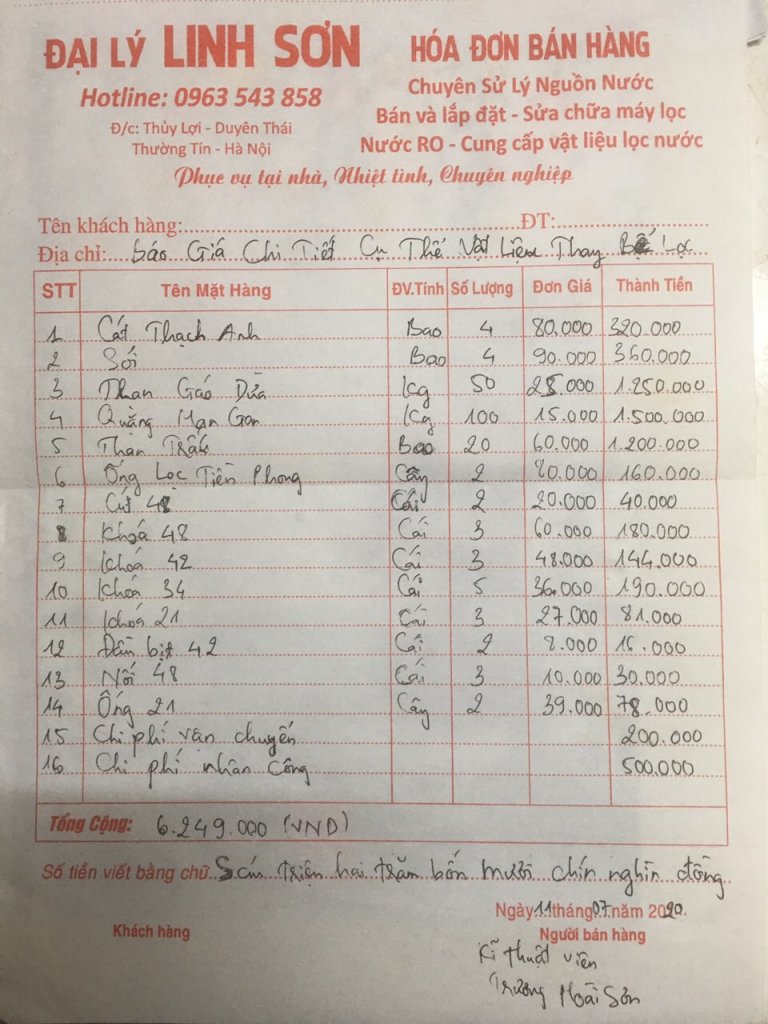 ĐẠI LÝ LINH SƠN
Hotline: 0963 543 858
Đ/c: Thủy Lợi - Duyên Thái
Thường Tín - Hà Nội
HÓA ĐƠN BÁN HÀNG
Chuyên Sử Lý Nguồn Nước
Bán và lắp đặt - Sửa chữa máy lọc
Nước RO - Cung cấp vật liệu lọc nước
Phục vụ tại nhà, Nhiệt tình, Chuyên nghiệp
Tên khách hàng: ĐT:
Địa chỉ: Báo Giá Chi Tiết Cụ Thể Vật Liệu Thay Bể Lọc
STT Tên Mặt Hàng ĐV.Tính Số Lượng Đơn Giá Thành Tiền
1 Cát Thạch Anh Bao 4 80.000 320.000
2 Sỏi Bao 4 90.000 360.000
3 Than Gáo Dừa Kg 50 25.000 1.250.000
4 Quặng Mạn Gan Kg 100 15.000 1.500.000
5 Than Trấu Bao 20 60.000 1.200.000
6 Ống Lọc Tiền Phong Cây 2 80.000 160.000
7 Cút 48 Cái 2 20.000 40.000
8 Khoá 48 Cái 3 60.000 180.000
9 Khoá 42 Cái 3 48.000 144.000
10 Khoá 34 Cái 5 36.000 190.000
11 Khoá 21 Cái 3 27.000 81.000
12 Đầu bịt 42 Cái 2 8.000 16.000
13 Nối 48 Cái 3 10.000 30.000
14 Ống 21 Cây 2 39.000 78.000
15 Chi phí vận chuyển 200.000
16 Chi phí nhân công 500.000
Tổng Cộng: 6.249.000 (VND)
Số tiền viết bằng chữ: Sáu triệu hai trăm bốn mươi chín nghìn đồng
Ngày 11 tháng 07 năm 2020.
Khách hàng Người bán hàng
Kĩ thuật viên
Trương Hoài Sơn